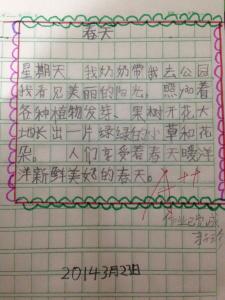 春天
星期天，我奶奶带我去公园
我看见美丽的阳光，照yào着
各种植物发芽、果树开花大
地长出一片绿绿的小草和花
朵。人们享受着春天暖洋
洋新鲜美好的春天。
作业已完成
2014年3月23日